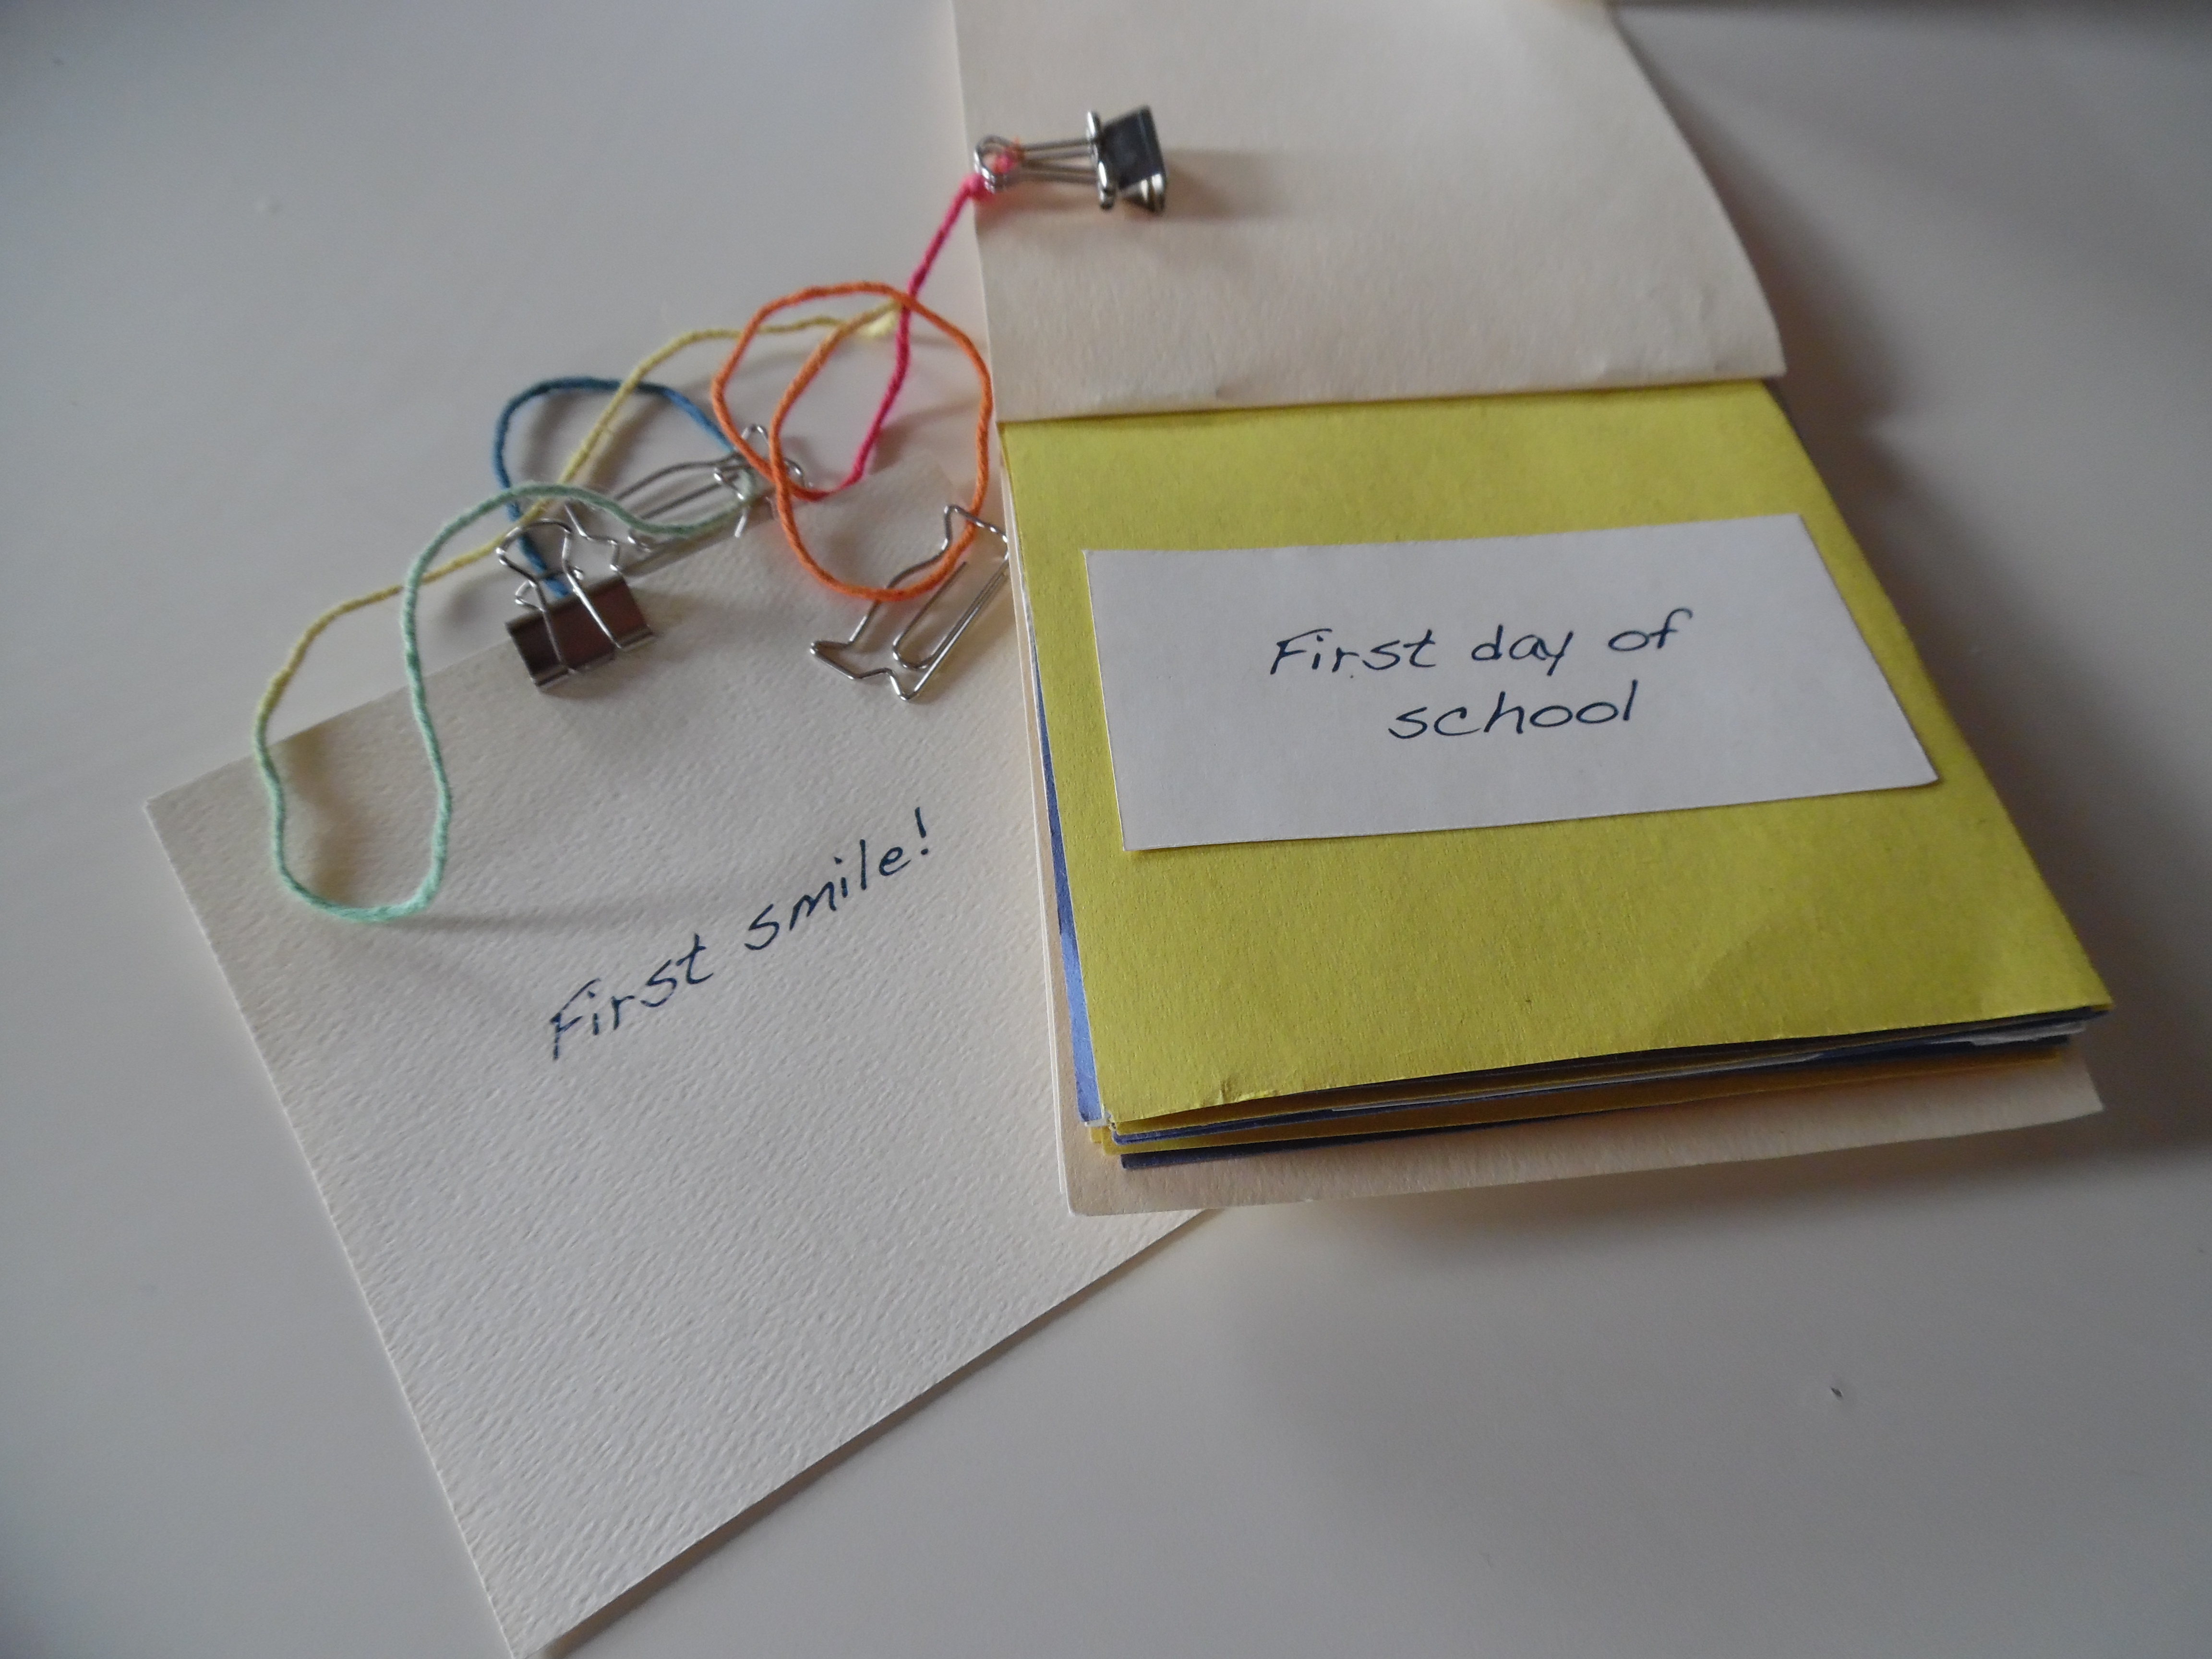 First smile!
First day of
school